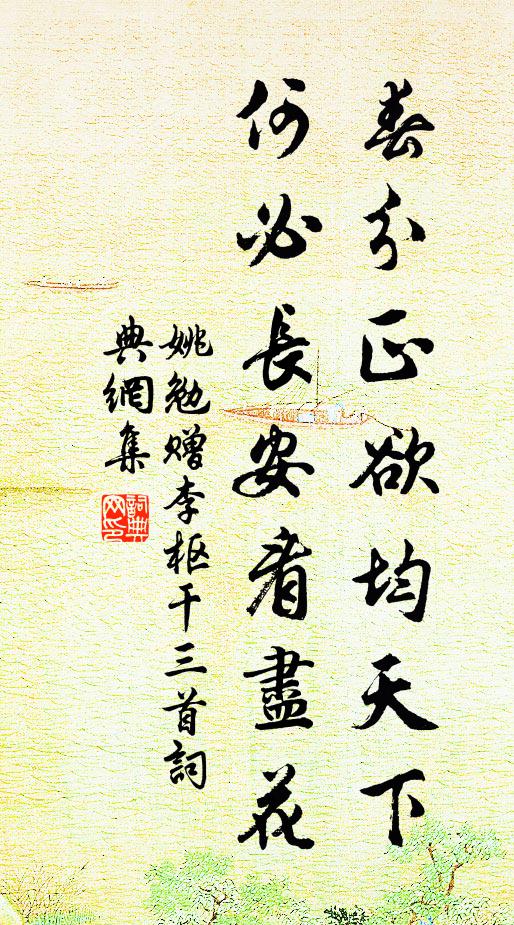 春分正欲均天下
何必長安看盡花
姚勉贈李枢干三首詞
典網集
詞典網印